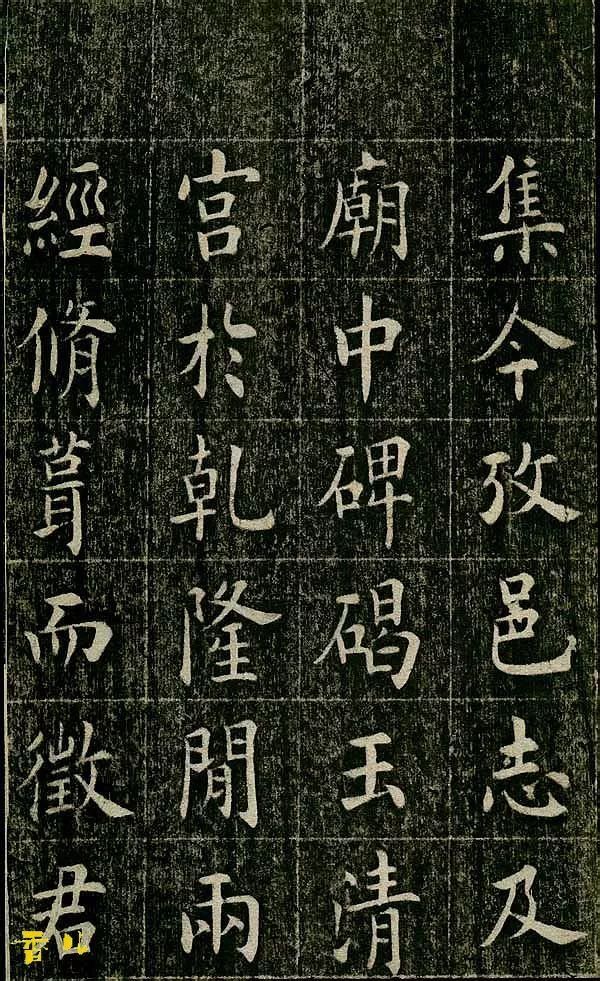 集今攷邑志及
廟中碑碣玉清
宮於乾隆閒兩
經脩葺而徵君